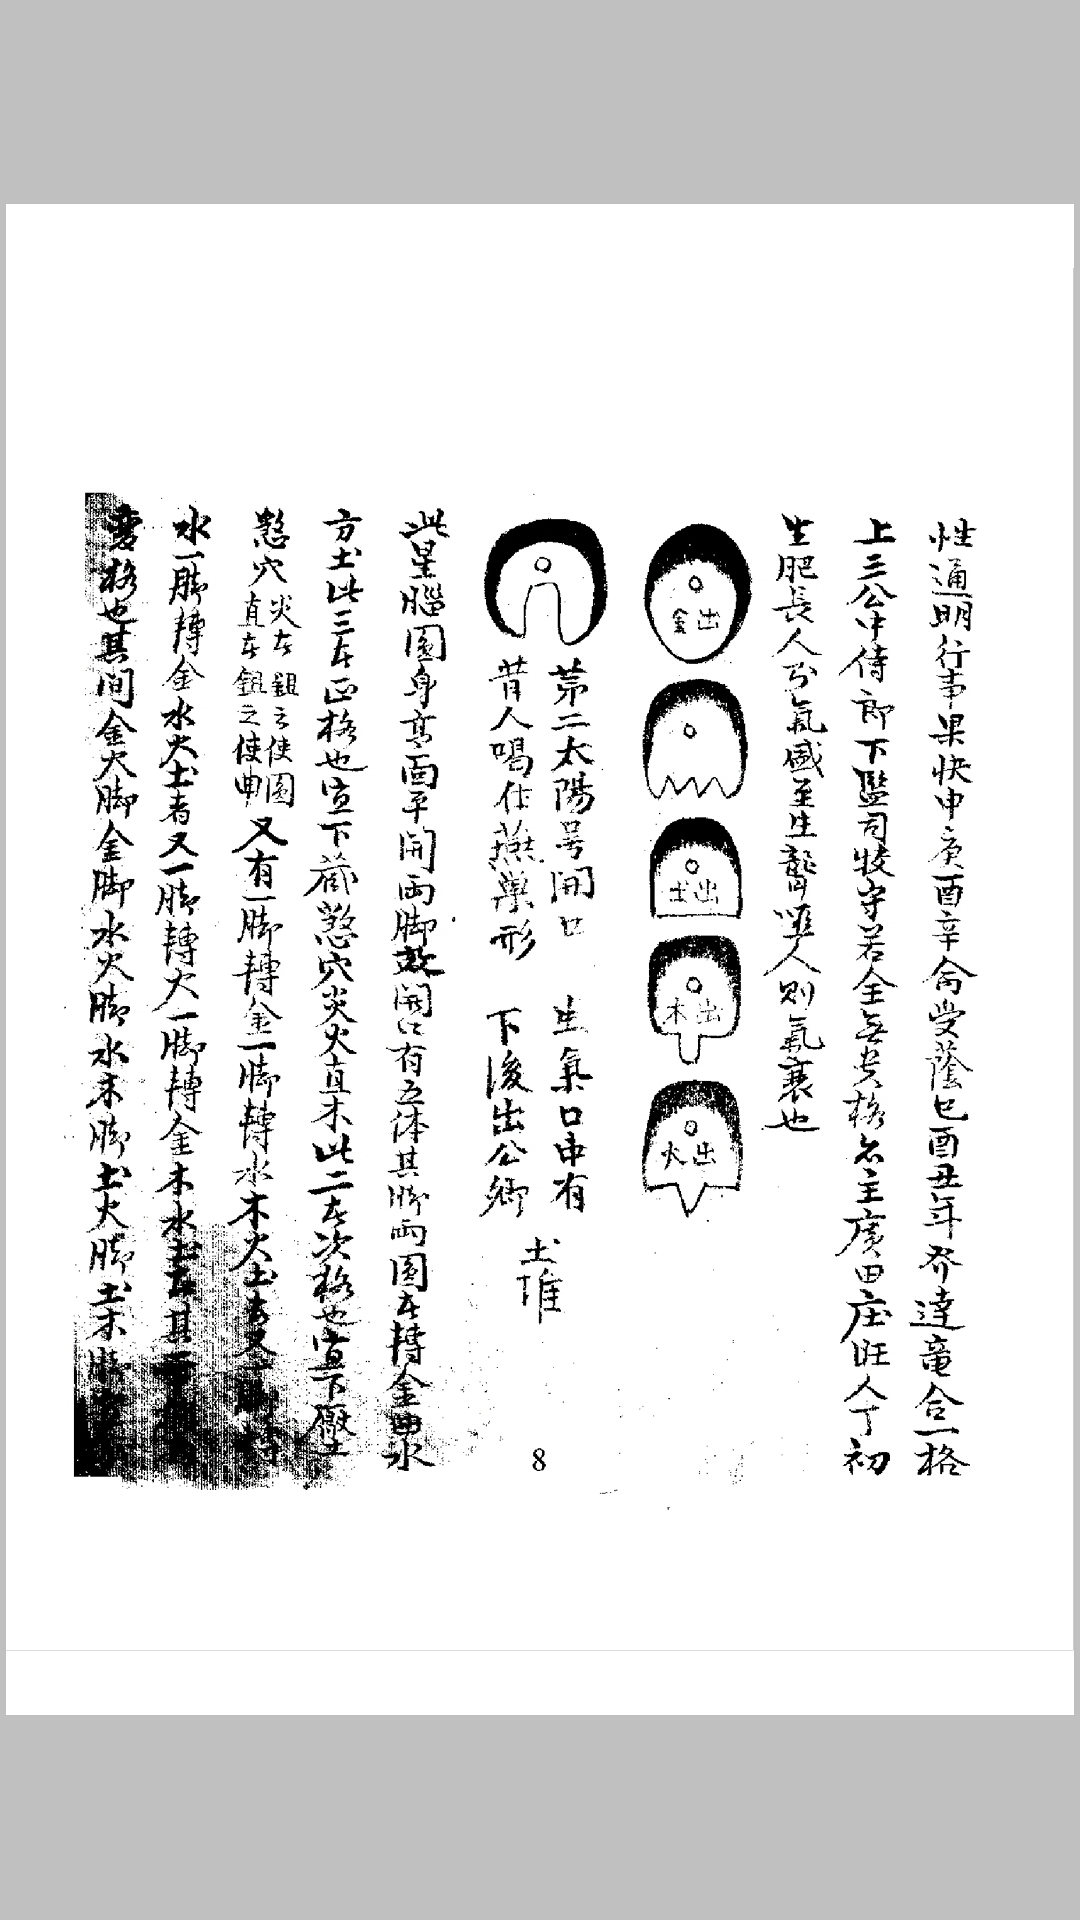 性通明行事果快申庚酉辛命受蔭巳酉丑年發達竜合一格
上三公中侍郎下監司牧守若全無貴格亦主廣田庄旺人丁初
生肥長人多氣盛至生聾啞人則氣衰也
出金
出土
出木
出火
第二太陽号開口 生氣口中有
昔人喝作燕巢形 下後出公卿
土堆
此星腦圓身高面平開兩脚故開口有五体其脚兩圓者轉金曲水
方土此三者正格也宜下藏煞穴炎火直木此二者次格也宜下壓
煞穴
炎者鉏之使圓
直者鉏之使曲
又有一脚轉金一脚轉水木火土者又一脚
水一脚轉金水火土者又一脚轉火一脚轉金木水土者其
変格也其間金火脚金脚水火脚水木脚土火脚土木脚
8